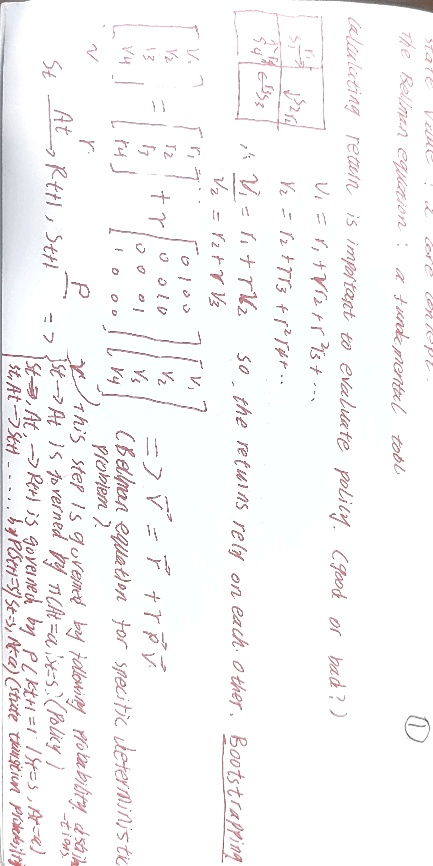 ①
State value : a core concept.
The Bellman equation : a fundamental tool.
Calculating return is important to evaluate policy. (good or bad?)
V₁ = r₁ + γr₂ + r²r₃ + ...
V₂ = r₂ + γr₃ + r²r₄ + ...
∴ V₁ = r₁ + γV₂ so, the returns rely on each other. Bootstrapping
V₂ = r₂ + γV₃
[V₁ V₂ V₃ V₄] = [r₁ r₂ r₃ r₄] + γ [0 1 0 0 0 0 1 0 0 0 0 1 1 0 0 0] [V₁ V₂ V₃ V₄] => V = r + γPV
V r P V (Bellman equation for specific deterministic problem)
St At → Rt+1, St+1 => this step is governed by following probability distributions
St → At is governed by π(At=a|St=s) (Policy)
St, At → Rt+1 is governed by P(Rt+1=r|St=s, At=a)
St, At → St+1 ..... by P(St+1=s'|St=s, At=a) (state transition probability